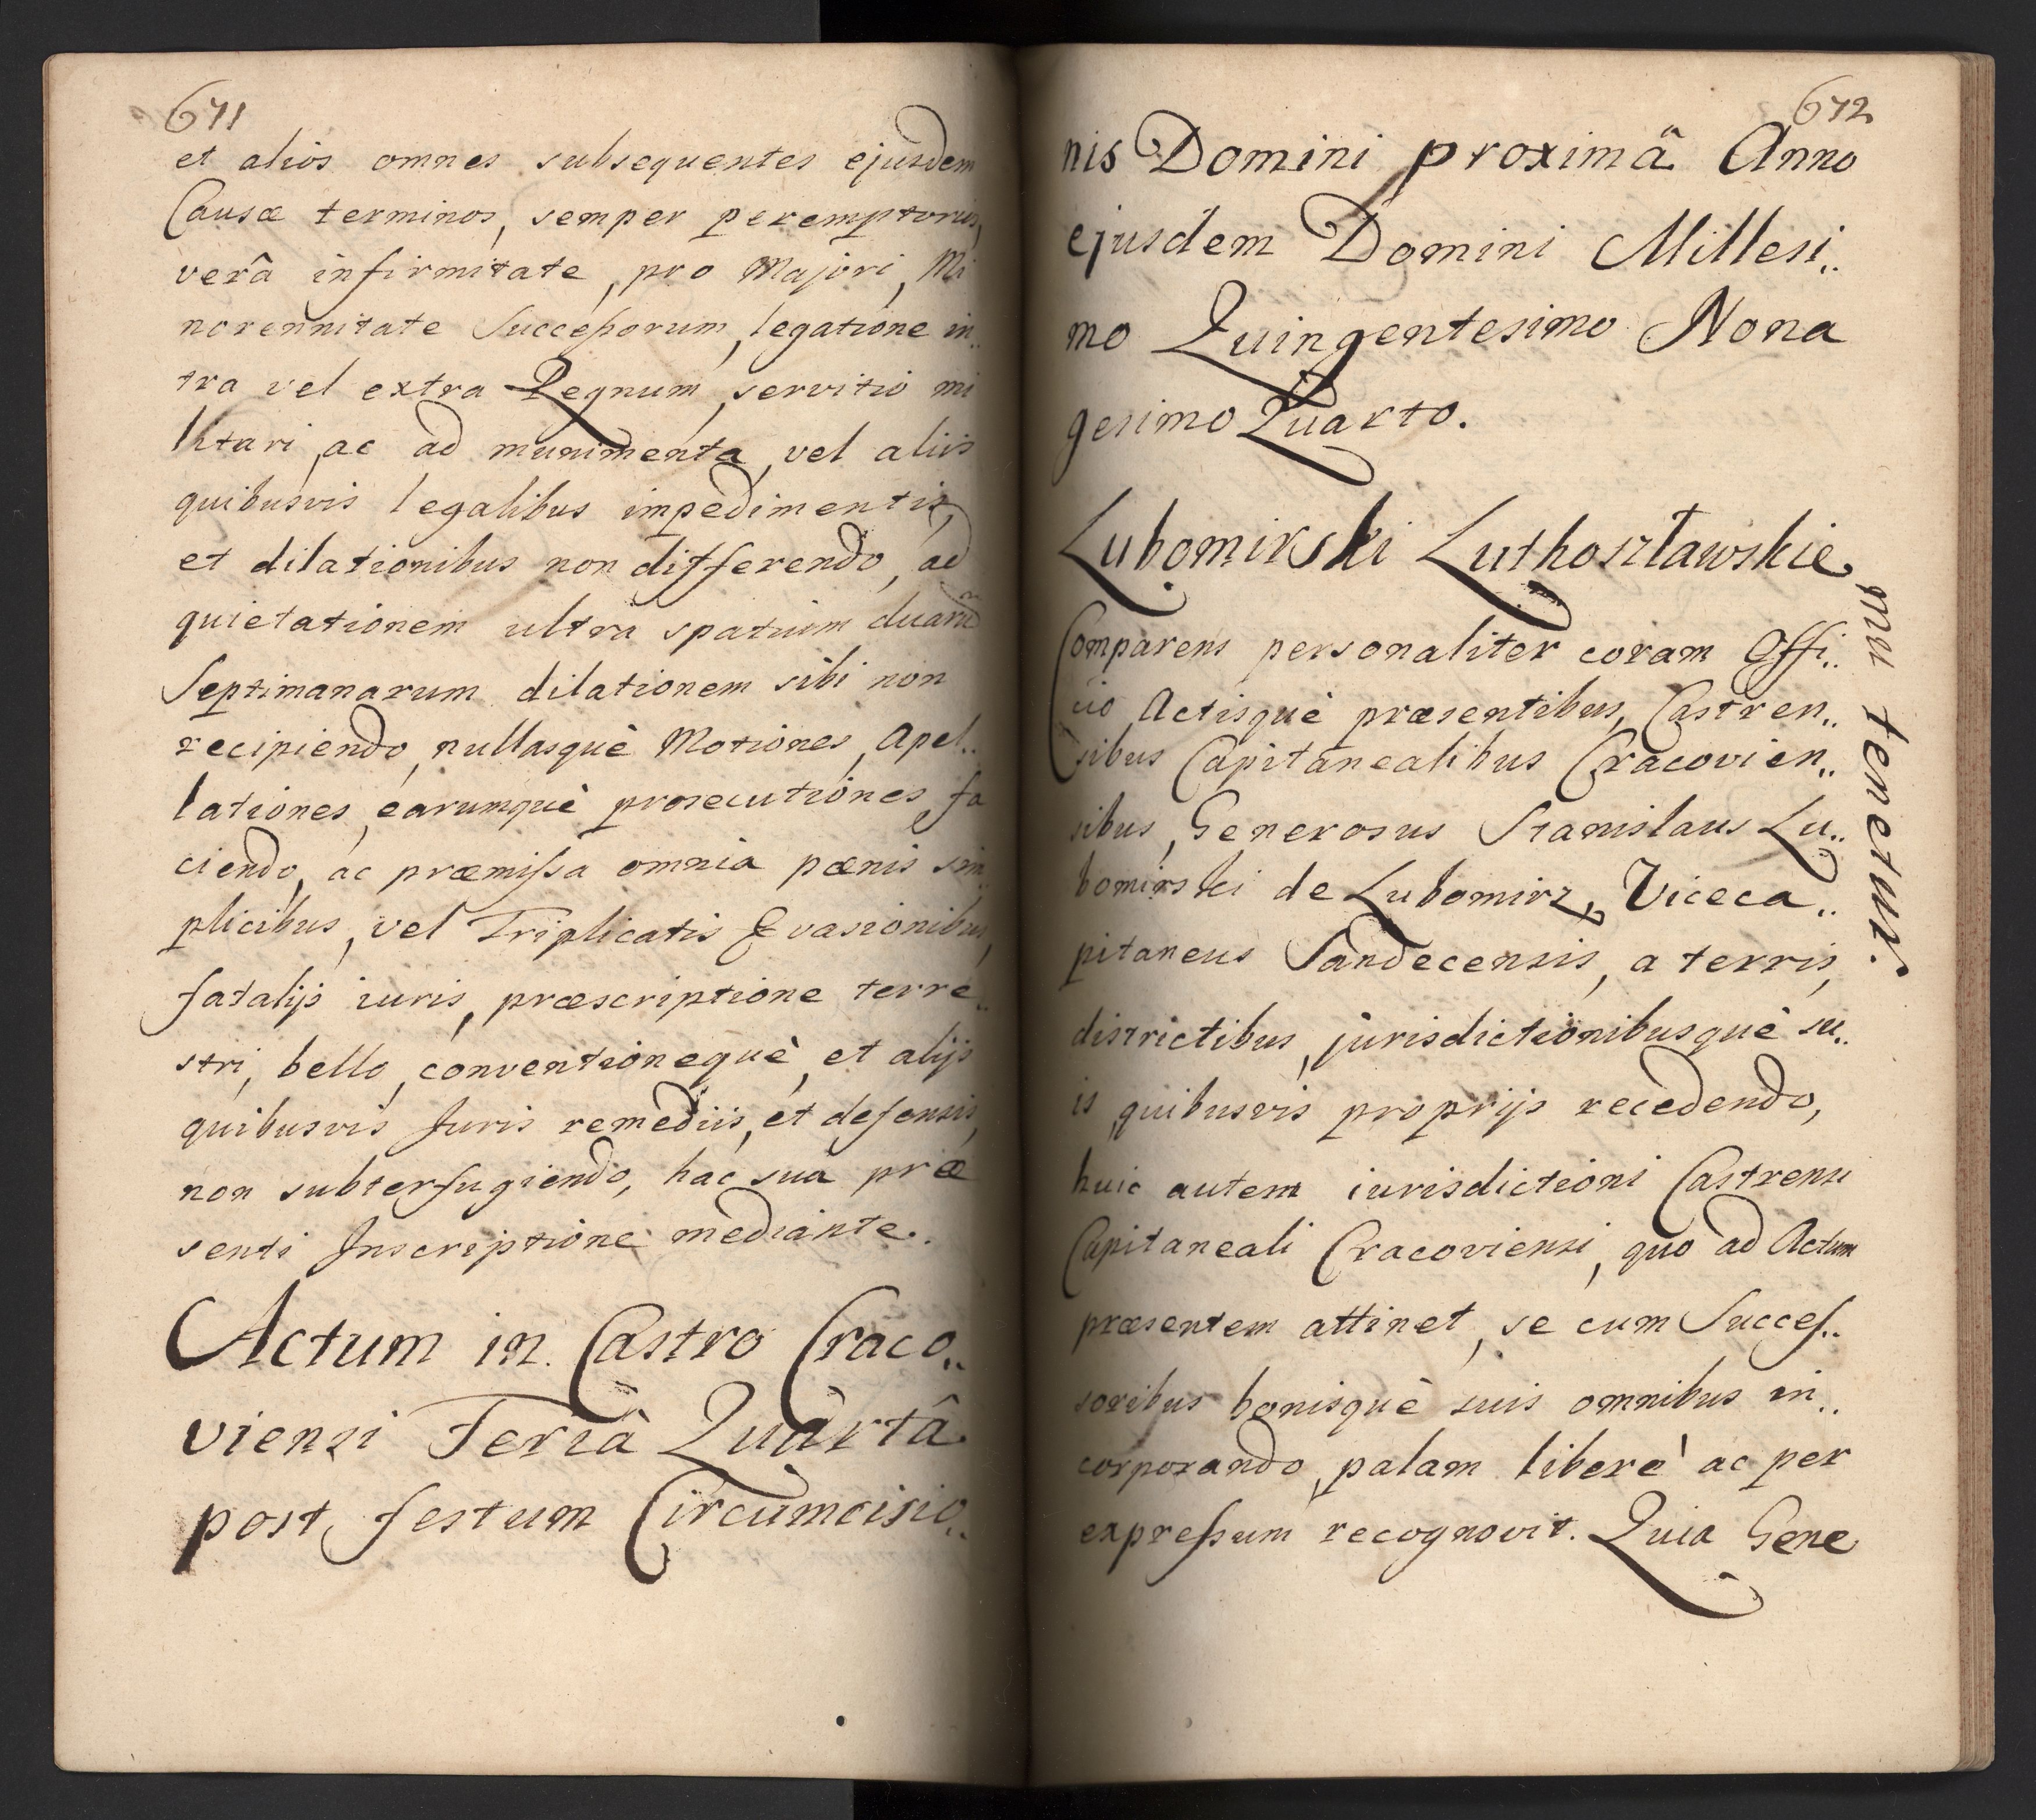 671
et aliós omnes subsequentes ejusdem
Causæ terminos, semper peremptorios,
verâ infirmitate, pro Majori, Mi
norennitate Succeſsorum, legatione in..
tra vel extra Regnum, servitio mi
litari, ac ad munimenta, vel aliis
quibusvis legalibus impedimentis,
et dilationibus non differendo, ad
quietationem ultra spatium duarũ
Septimanarum dilationem sibi non
recipiendo, nullasquè Motiones, Apel..
lationes, earumquè prosecutiones, fa
ciendo, ac præmiſsa omnia pœnis sim
plicibus, vel Triplicatis Evasionibus,
fatalijs iuris, præscriptione terre..
stri, bello, conventionequè, et alijs
quibusvis Juris remediis, et defensis,
non subterfugiendo, hac sua præ
senti Inscriptione mediante.
Actum in Castro Craco..
viensi Feriâ Quartâ
post festum Circumcisio..
672
nis Domini proximâ Anno
ejusdem Domini Millesi..
mo Quingentesimo Nona
gesimo Quarto.
Lubomirski Luthosztawskie
qnu tenetur.
Comparens personaliter coram Offi..
cio Actisquè præsentibus, Castren..
sibus Capitanealibus Cracovien..
sibus, Generosus Stanislaus Lu..
bomirski de Lubomirz, Viceca..
pitaneus Sandecensis, a terris,
districtibus, jurisdictionibusquè su..
is quibusvis proprijs recedendo,
huic autem iurisdictioni Castrensi
Capitaneali Cracoviensi, quo ad Actum
præsentem attinet, se cum Succeſ..
soribus bonisquè suis omnibus in..
corporando, palam liberè ac per
expreſsum recognovit. Quia Gene